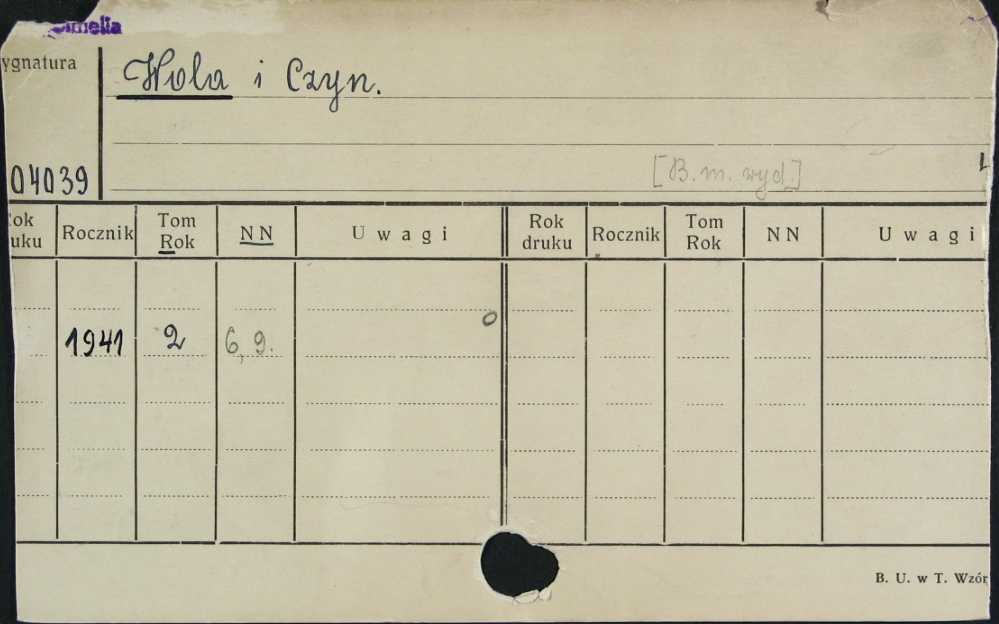 Cimelia
ygnatura
Wola i Czyn.
[B. m. wyd.]
04039
Rok druku Rocznik Tom Rok NN Uwagi Rok druku Rocznik Tom Rok NN Uwagi
1941 2 6, 9.
B. U. w T. Wzór